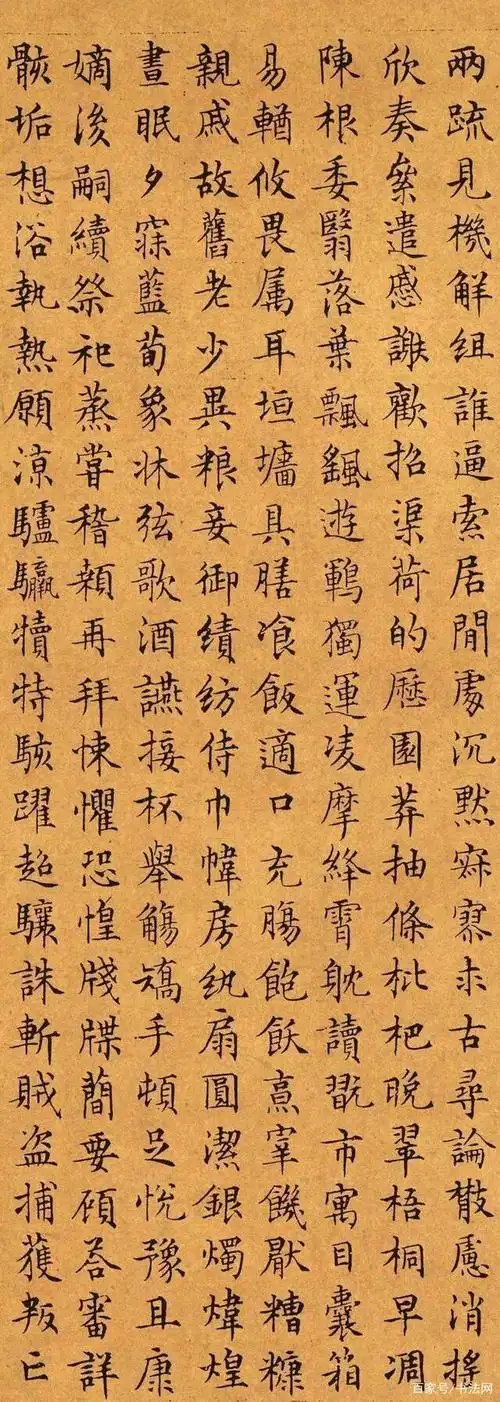 兩疏見機解組誰逼索居閒處沉默寂寥求古尋論散慮消搖
欣奏叅遣慼謝歡招渠荷的歷園莽抽條枇杷晚翠梧桐早凋
陳根委翳落葉飄颻遊鵾獨運凌摩絳霄耽讀翫市寓目囊箱
易輶攸畏属耳垣墻具膳飡飯適口充腸飽飫烹宰饑厭糟糠
親戚故舊老少異粮妾御績紡侍巾幃房紈扇圓潔銀燭煒煌
晝眠夕寐藍荀象牀弦歌酒讌接杯舉觴矯手頓足悅豫且康
嫡後嗣續祭祀蒸甞稽顙再拜悚懼恐惶牋牒簡要顧荅審詳
骸垢想浴執熱願涼驢驘犢特駭躍超驤誅斬賊盜捕獲叛亡
百家号/书法网